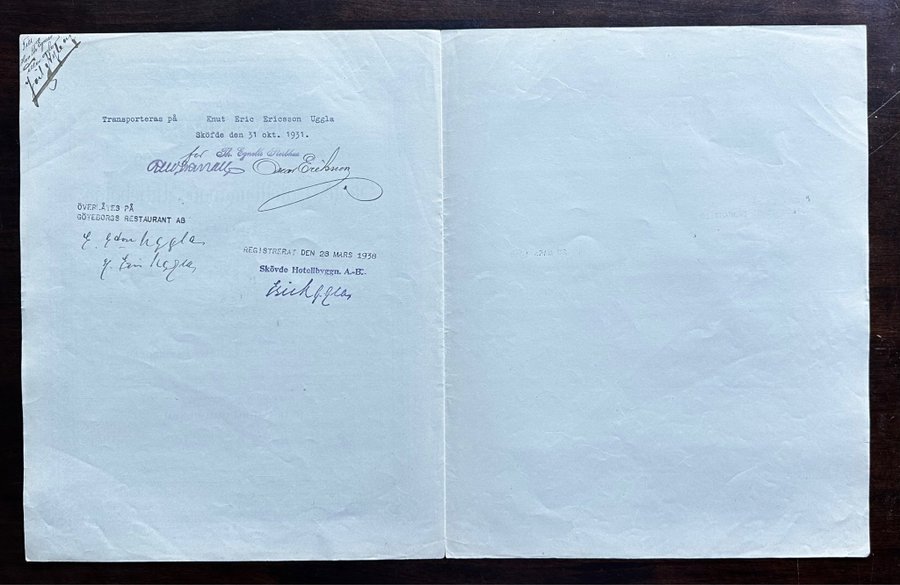 Transporteras på Knut Eric Ericsson Uggla
Sköfde den 31 okt. 1931.
för Th. Egnells Sterbhus
Oscar Erikson
ÖVERLÅTES PÅ
GÖTEBORGS RESTAURANT AB
Uggla
Uggla
REGISTRERAT DEN 28 MARS 1938
Skövde Hotellbyggn. A.-B.
Eric Uggla